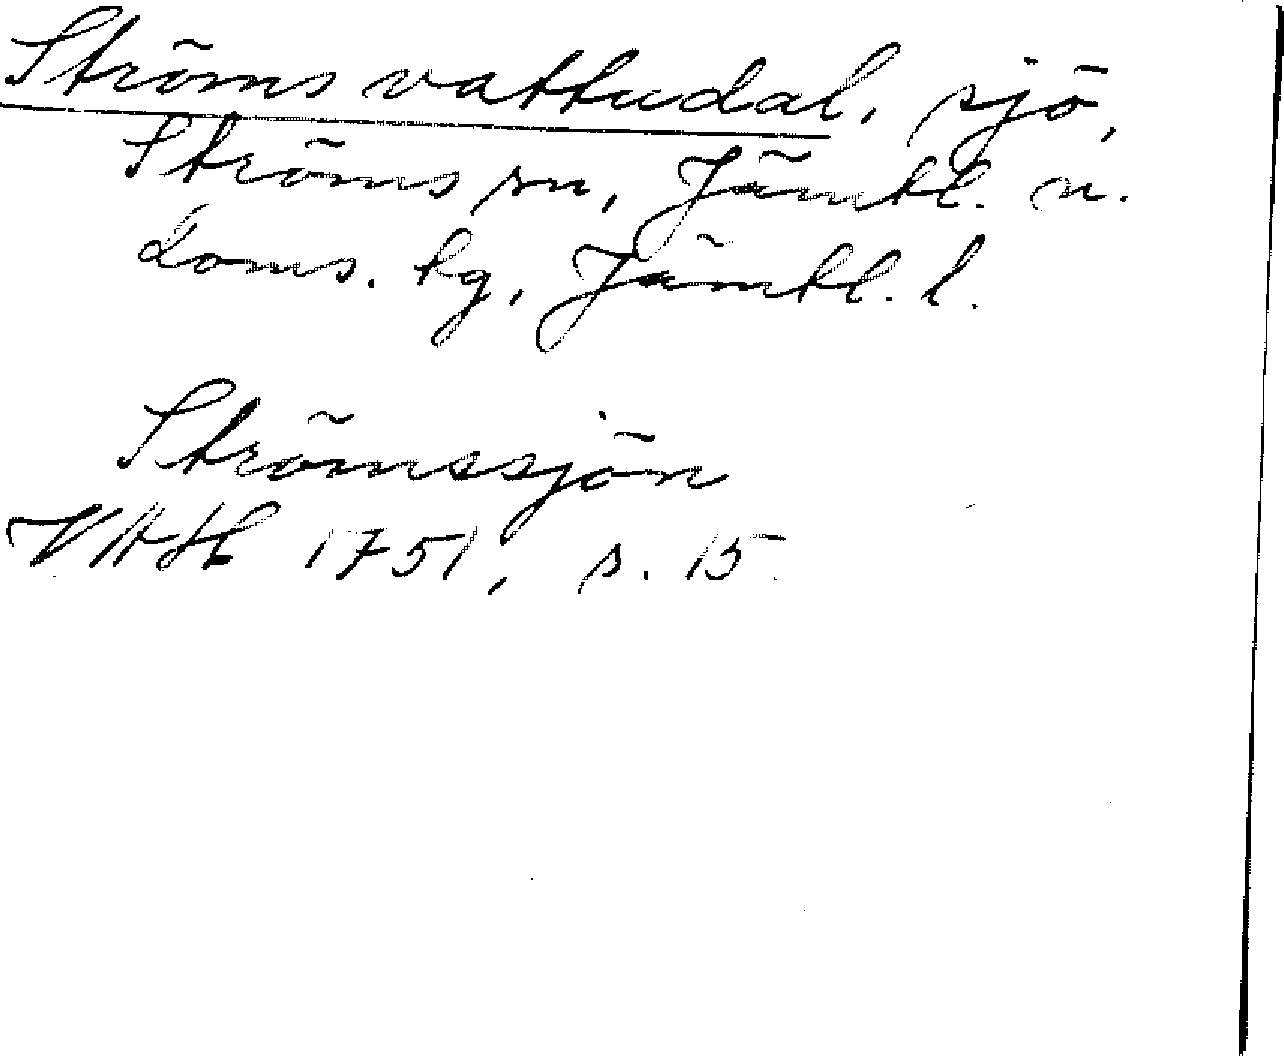 Ströms vattudal, sjö,
Ströms sn, Jämtl. n.
doms. tg, Jämtl. l.
Strömssjön
VAH 1751, s. 15